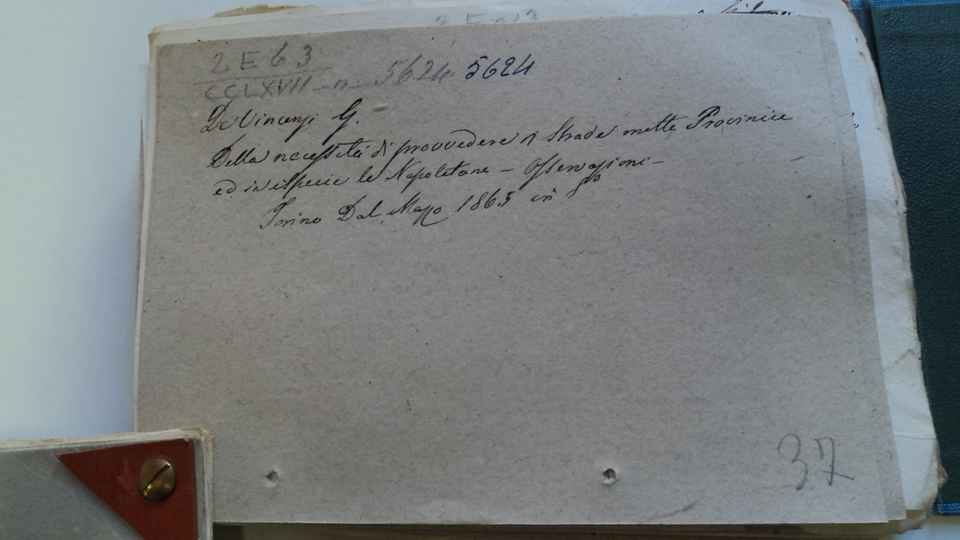 2 E 63
CCLXVII n 5624 5624
De Vincenzi G.
Della necessità di provvedere di Strade molte Provincie
ed in ispecie le Napoletane – Osservazioni –
Torino Dal Mazzo 1863 in 8º
37